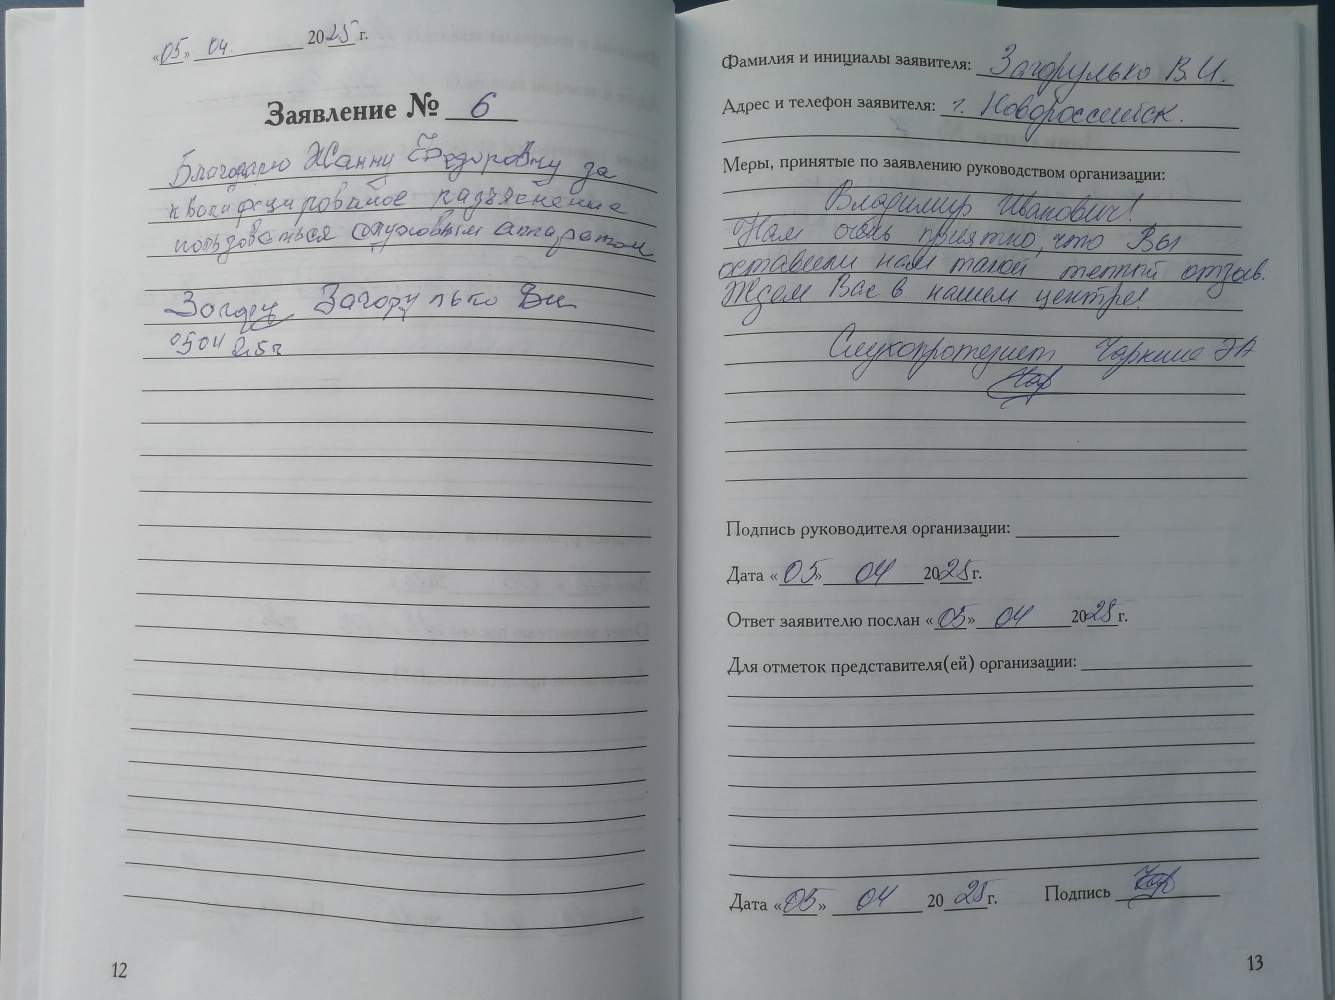 «05» 04 2025 г.
Заявление № 6
Благодарю Жанну Федоровну за
квалифецированое разъяснение
пользоваться слуховым аппаратом
Загорулько Ви
05 04 25г
12
Фамилия и инициалы заявителя: Загорулько В.И.
Адрес и телефон заявителя: г. Новороссийск.
Меры, принятые по заявлению руководством организации:
Владимир Иванович!
Нам очень приятно, что Вы
оставили нам такой теплый отзыв.
Ждем Вас в нашем центре!
Слухопротезист
Подпись руководителя организации:
Дата «05» 04 2025 г.
Ответ заявителю послан «05» 04 2025 г.
Для отметок представителя(ей) организации:
Дата «05» 04 2025 г. Подпись
13